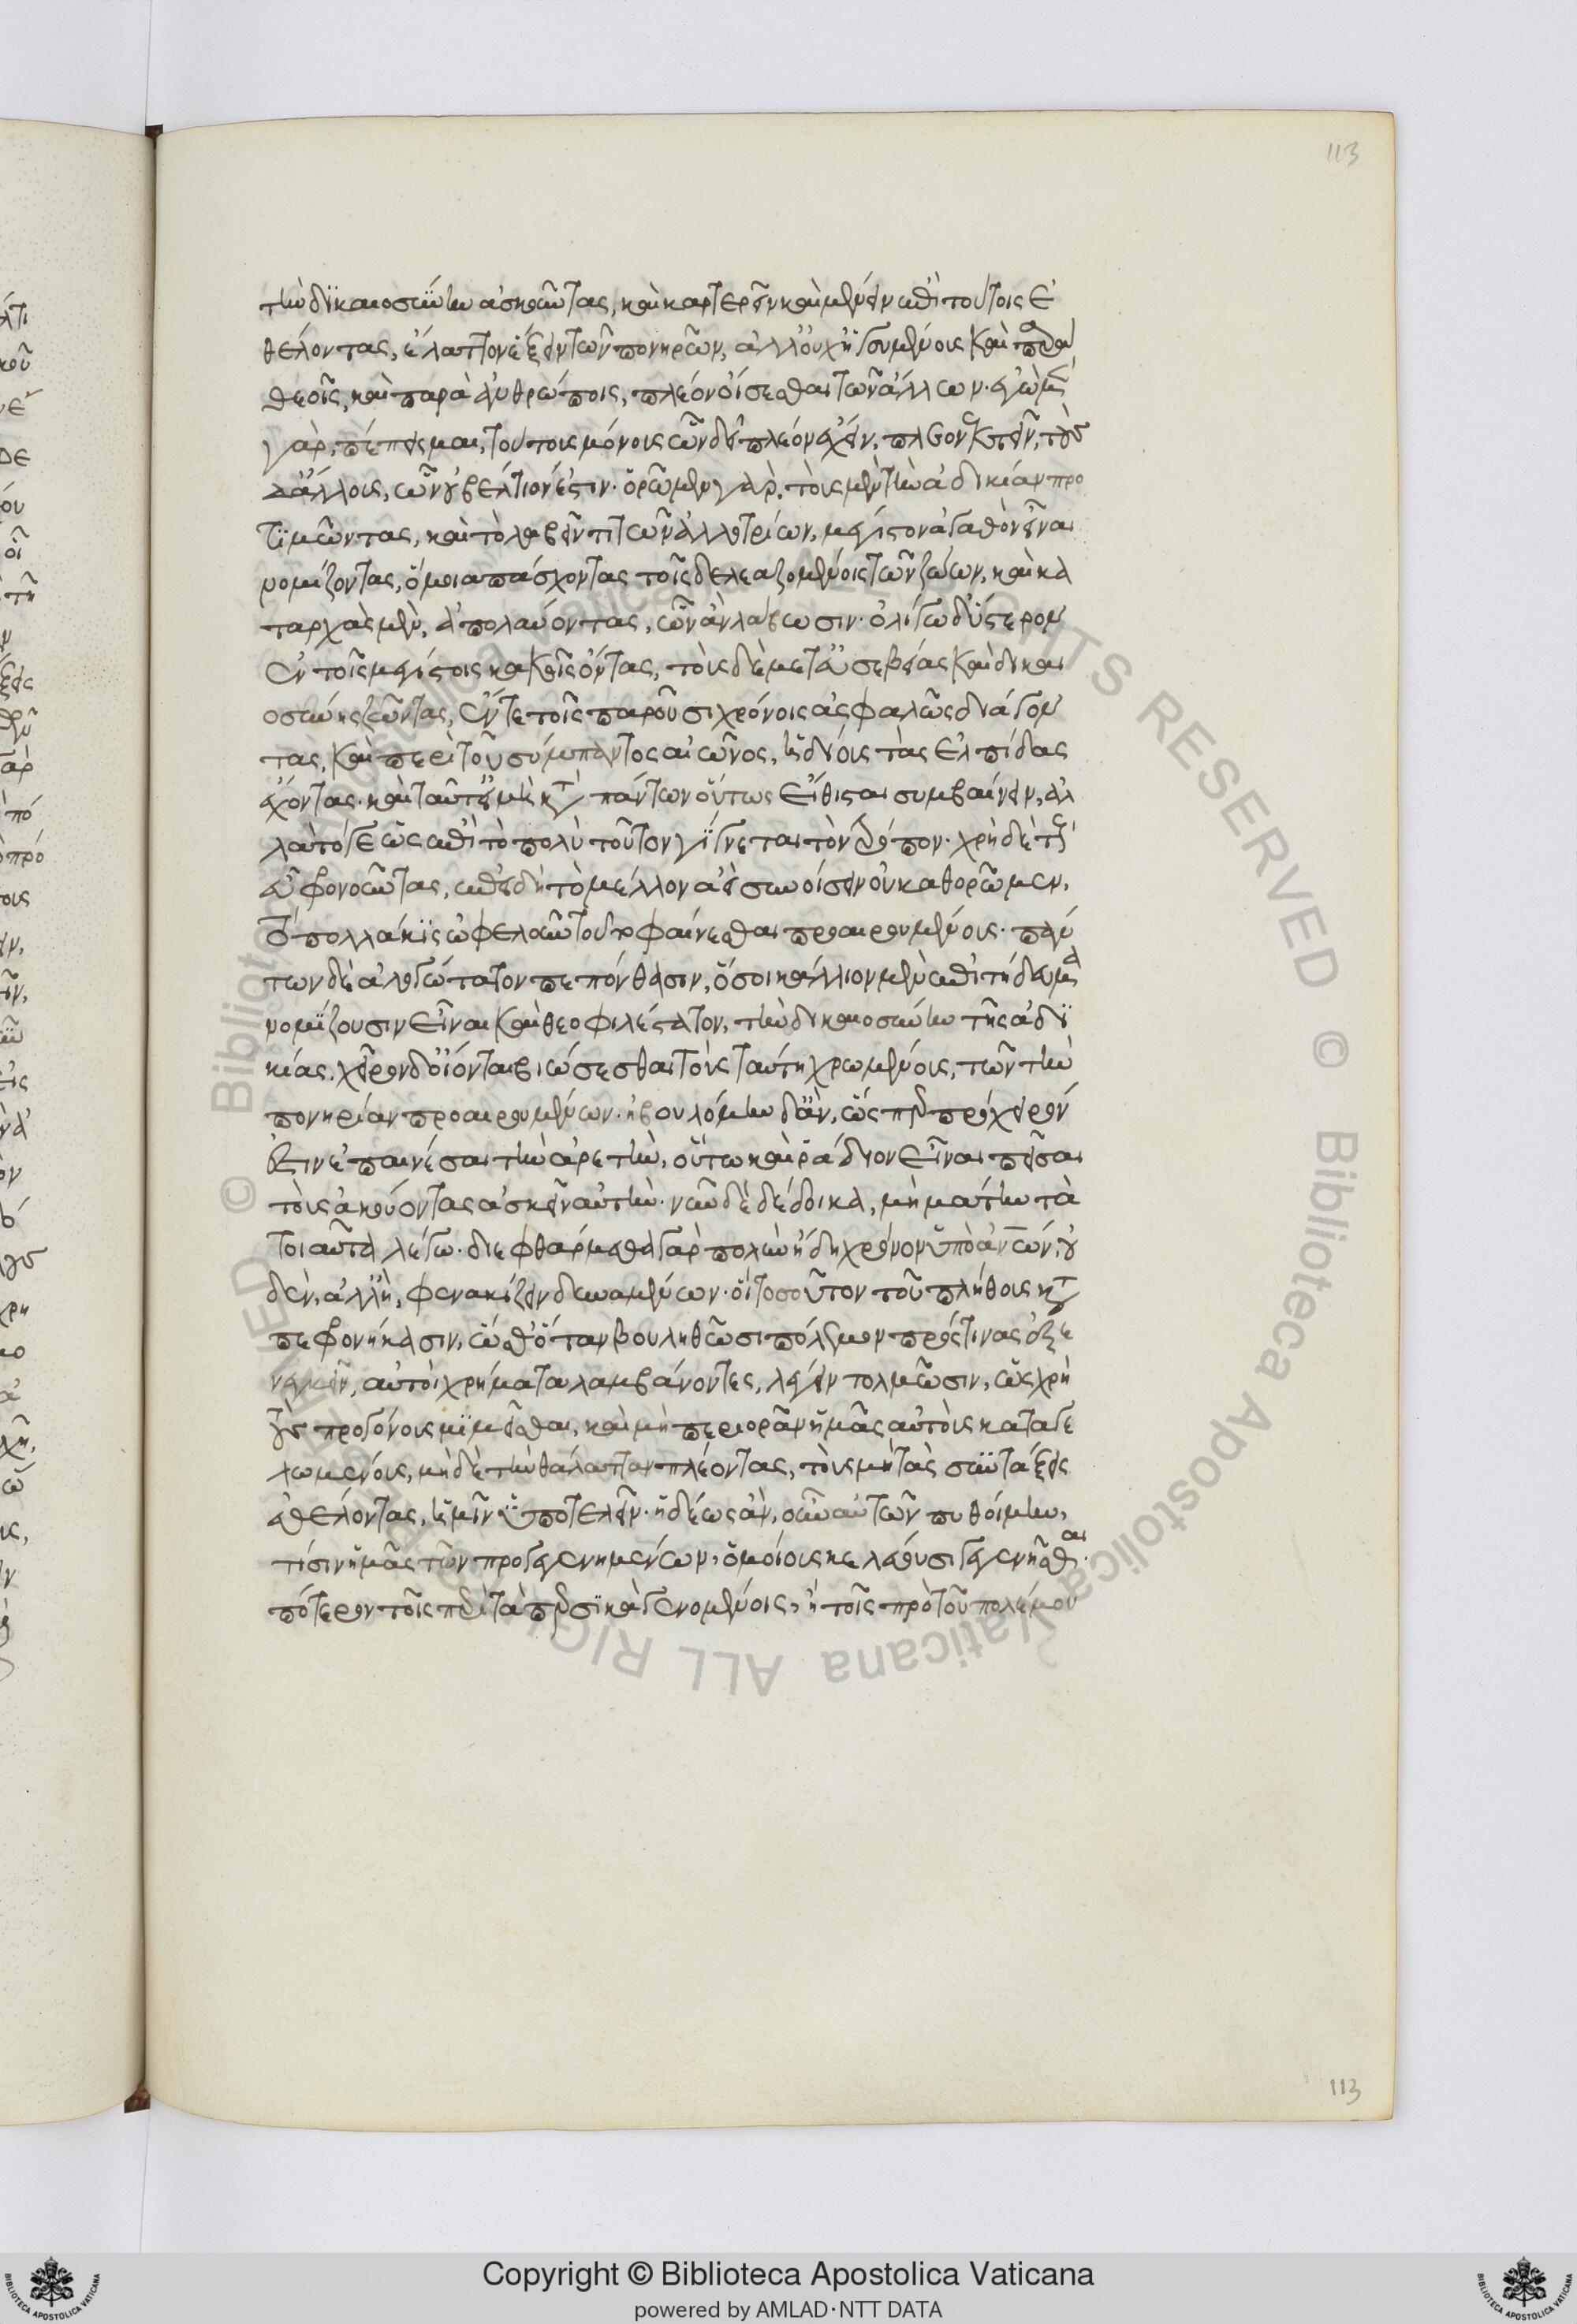 113
τὴν δικαιοσύνην ἀσκοῦντας, καὶ καρτερεῖν καὶ μένειν ἐπὶ τούτοις ἐ
θέλοντας, ἔλαττον ἕξειν τῶν πονηρῶν, ἀλλ' οὐχ ἡγουμένους καὶ παρὰ
θεοῖς, καὶ παρὰ ἀνθρώποις, πλέον οἴσεσθαι τῶν ἄλλων. ἐγὼ μὲν
γὰρ, πέπεισμαι, τούτους μόνους ὧν δεῖ πλέον ἔχειν, πλεονεκτεῖν, τοὺς
δ' ἄλλους, ὧν οὐ βέλτιόν ἐστιν. ὁρῶμεν γὰρ, τοὺς μὲν τὴν ἀδικίαν προ
τιμῶντας, καὶ τὸ λαβεῖν τι τῶν ἀλλοτρίων, μέγιστον ἀγαθὸν εἶναι
νομίζοντας, ὅμοια πάσχοντας τοῖς δελεαζομένοις τῶν ζώων, καὶ κα
ταρχὰς μὲν, ἀπολαύοντας, ὧν ἂν λάβωσιν. ὀλίγω δ' ὕστερον
ἐν τοῖς μεγίστοις κακοῖς ὄντας, τοὺς δὲ μετ' εὐσεβείας καὶ δικαι
οσύνης ζῶντας, ἔν τε τοῖς παροῦσι χρόνοις ἀσφαλῶς διάγον
τας, καὶ περὶ τοῦ σύμπαντος αἰῶνος, ἡδίους τὰς ἐλπίδας
ἔχοντας. καὶ ταῦτ' εἰ μὴ κατὰ πάντων οὕτως εἴθισται συμβαίνειν, ἀλ
λὰ τό γε ὡς ἐπὶ τὸ πολὺ τοῦτον γίγνεται τὸν τρόπον. χρὴ δὲ τοὺς
εὖ φρονοῦντας, ἐπειδὴ τὸ μέλλον ἀεὶ συνοίσειν οὐ καθορῶμεν,
τὸ πολλάκις ὠφελοῦν τοῦτο φαίνεσθαι προαιρουμένους. πάν
των δὲ ἀλογώτατον πεπόνθασιν, ὅσοι κάλλιον μὲν ἐπιτήδευμα
νομίζουσιν εἶναι καὶ θεοφιλέστατον, τὴν δικαιοσύνην τῆς ἀδι
κίας, χεῖρον δ' οἴονται βιώσεσθαι τοὺς ταύτῃ χρωμένους, τῶν τὴν
πονηρίαν προαιρουμένων. ἠβουλόμην δ' ἂν, ὥσπερ πρόχειρόν
ἐστιν ἐπαινέσαι τὴν ἀρετὴν, οὕτω καὶ ῥάδιον εἶναι πεῖσαι
τοὺς ἀκούοντας ἀσκεῖν αὐτήν. νῦν δὲ δέδοικα, μὴ μάτην τὰ
τοιαῦτα λέγω. διεφθάρμεθα γὰρ πολὺν ἤδη χρόνον ὑπὸ ἀνων, οὐ
δὲν, ἀλλ' ἢ, φενακίζειν δυναμένων. οἳ τοσοῦτον τοῦ πλήθους κατα
πεφρονήκασιν, ὥσθ' ὅταν βουληθῶσι πόλεμον πρός τινας ἐξε
νεγκεῖν, αὐτοὶ χρήματα λαμβάνοντες, λέγειν τολμῶσιν, ὡς χρὴ
τοὺς προγόνους μιμεῖσθαι, καὶ μὴ περιορᾶν ἡμᾶς αὐτοὺς καταγε
λωμένους, μὴ δὲ τὴν θάλατταν πλέοντας, τοὺς μὴ τὰς συντάξεις
ἐθέλοντας, ἡμῖν ὑποτελεῖν. ἡδέως ἂν, οὖν αὐτῶν πυθοίμην,
τίσιν ἡμᾶς τῶν προγεγενημένων, ὁμοίους κελεύουσι γεγενῆσθαι.
πότερον τοῖς περὶ τὰ περσικὰ γενομένοις, ἢ τοῖς πρὸ τοῦ πολέμου
113
Copyright © Biblioteca Apostolica Vaticana
powered by AMLAD·NTT DATA